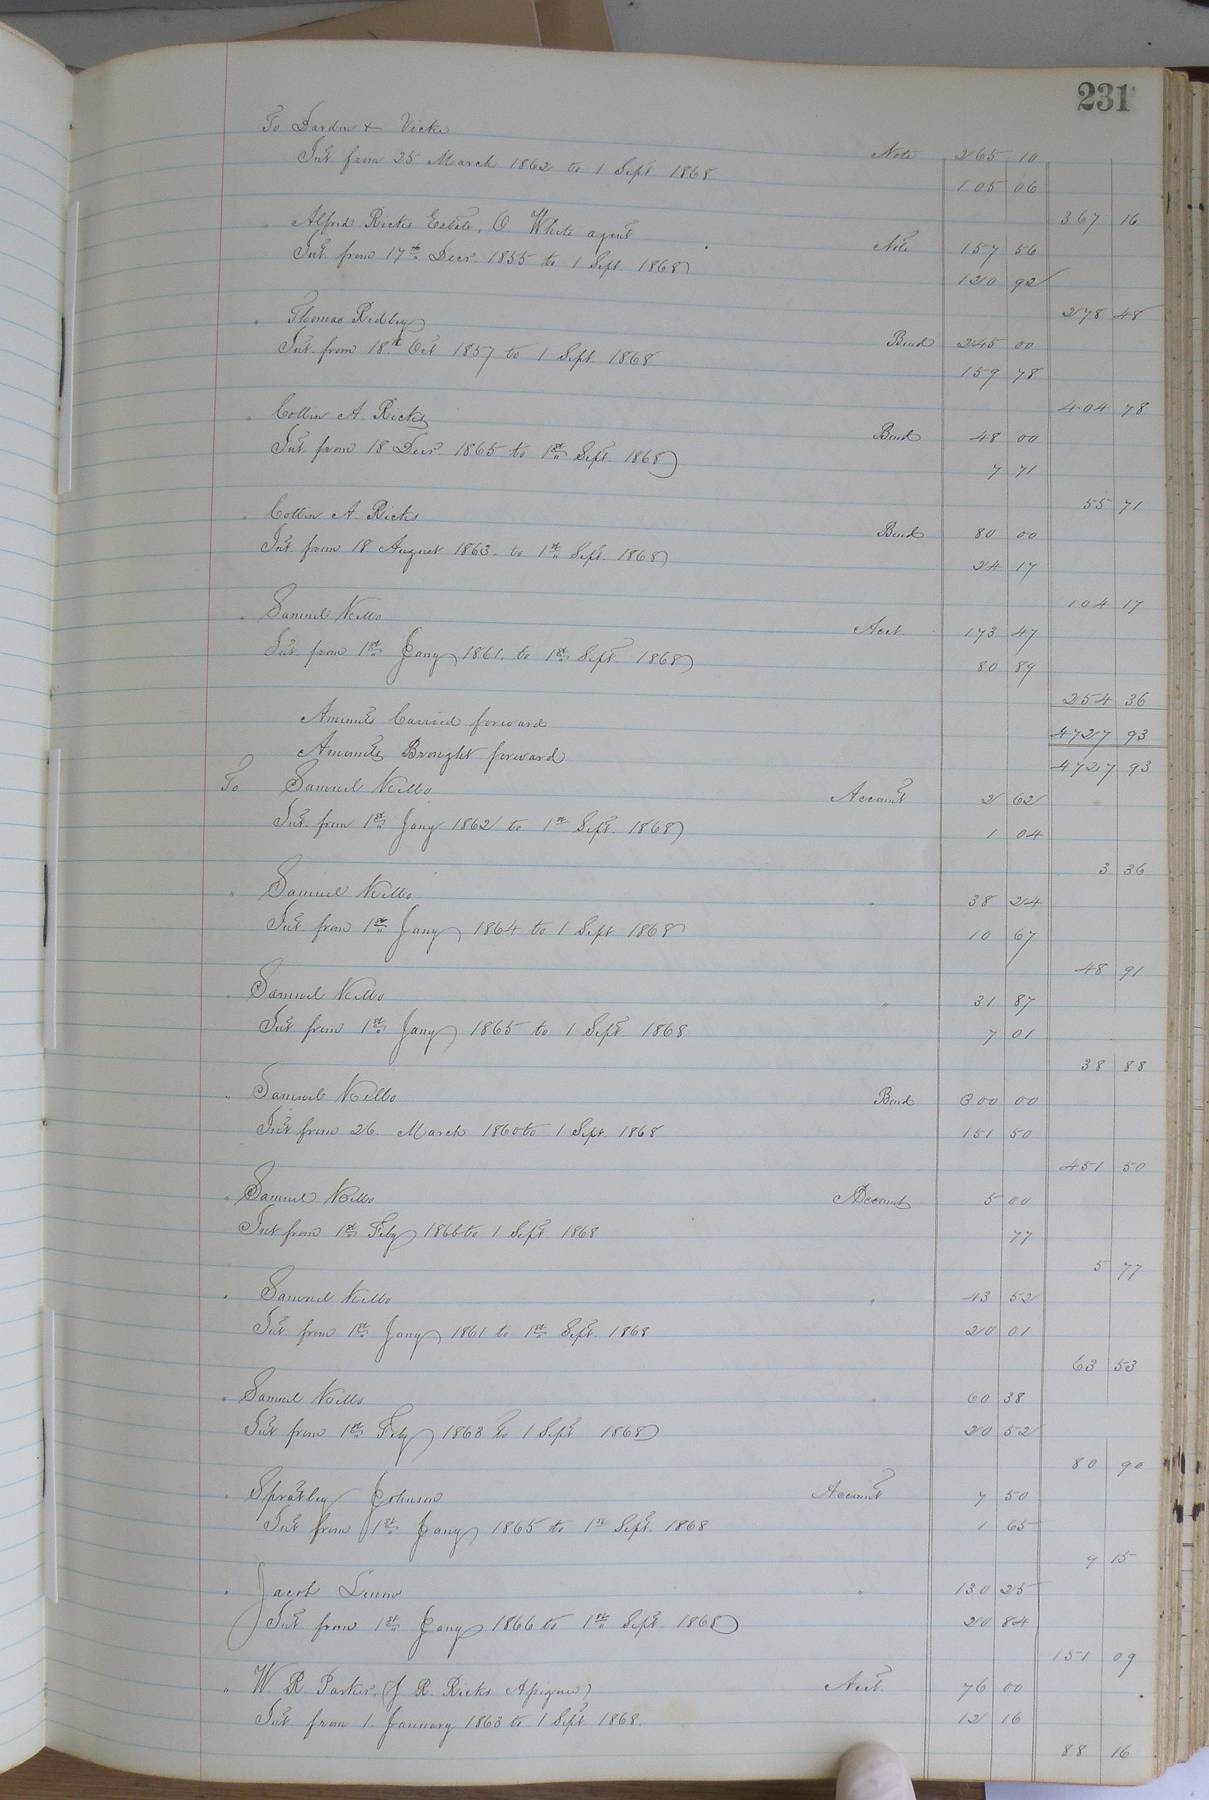 231
To Darden & Vicks Note 265 10
Int from 25 March 1862 to 1 Sept. 1868 105 06
367 16
" Alfred Ricks Estate, O White agent Note 157 56
Int. from 17th Decr. 1855 to 1 Sept. 1868 120 92
278 48
" Thomas Ridley Bond 245 00
Int. from 18th Oct 1857 to 1 Sept 1868 159 78
404 78
" Collin A Ricks Bond 48 00
Int. from 18 Decr. 1865 to 1st Sept 1868 7 71
55 71
" Collin A. Ricks Bond 80 00
Int. from 18 August 1863. to 1st Sept. 1868 24 17
104 17
" Samuel Kello Acct. 173 47
Int. from 1st Jany 1861. to 1st Sept. 1868 80 89
254 36
Amounts Carried forward 4727 93
Amounts Brought forward 4727 93
To Samuel Kello Account 2 62
Int from 1st Jany 1862 to 1st Sept 1868 1 04
3 36
" Samuel Kello " 38 24
Int. from 1st Jany 1864 to 1 Sept 1868 10 67
48 91
" Samuel Kello " 31 87
Int. from 1st Jany 1865 to 1 Sept. 1868 7 01
38 88
" Samuel Kello Bond 300 00
Int from 26. March 1860 to 1 Sept. 1868 151 50
451 50
" Samuel Kello Account 5 00
Int from 1st Feby 1866 to 1 Sept 1868 77
5 77
" Samuel Kello " 43 52
Int. from 1st Jany 1861 to 1st Sept. 1868 20 01
63 53
" Samuel Kello " 60 38
Int from 1st Feby 1863 to 1 Sept 1868 20 52
80 90
" Spratley Johnson Account 7 50
Int from 1st Jany 1865 to 1st Sept. 1868 1 65
9 15
" Jacob " 130 25
Int from 1st Jany 1866 to 1st Sept 1868 20 84
151 09
" W. R. Parker, (J R. Ricks Asignee) Acct 76 00
Int from 1. January 1863 to 1 Sept 1868. 12 16
88 16